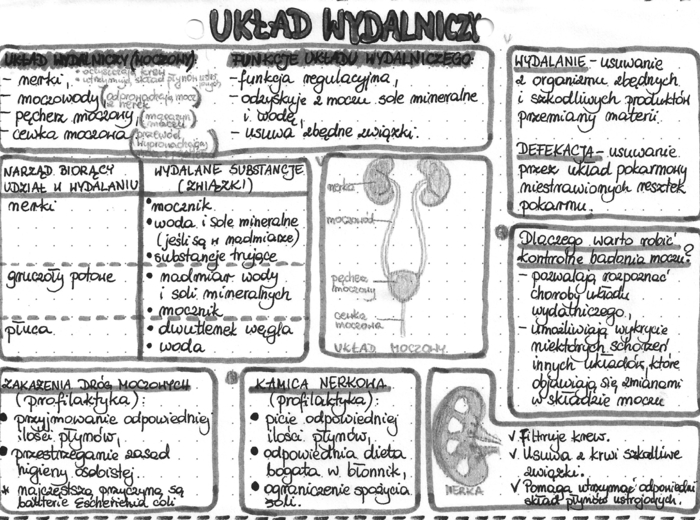 UKŁAD WYDALNICZY
UKŁAD WYDALNICZY (MOCZOWY)
- nerki,
• oczyszczają krew
• utrzymują skład płynów ustrojowych
- moczowody (odprowadzają mocz
z nerek
- pęcherz moczowy, (magazyn
moczu)
- cewka moczowa (przewód
wyprowadzający
FUNKCJE UKŁADU WYDALNICZEGO:
- funkcja regulacyjna,
- odzyskuje z moczu sole mineralne
i wodę,
- usuwa zbędne związki.
WYDALANIE - usuwanie
z organizmu zbędnych
i szkodliwych produktów
przemiany materii.
DEFEKACJA - usuwanie
przez układ pokarmowy
niestrawionych resztek
pokarmu.
NARZĄD BIORĄCY
UDZIAŁ W WYDALANIU
WYDALANE SUBSTANCJE
(ZWIĄZKI)
nerki
• mocznik
• woda i sole mineralne
(jeśli są w nadmiarze)
• substancje trujące
gruczoły potowe
• nadmiar wody
i soli mineralnych
• mocznik
płuca
• dwutlenek węgla
• woda
nerka
moczowód
pęcherz
moczowy
cewka
moczowa
UKŁAD MOCZOWY
Dlaczego warto robić
kontrolne badania moczu?
- pozwalają rozpoznać
choroby układu
wydalniczego,
- umożliwiają wykrycie
niektórych schorzeń
innych układów, które
objawiają się zmianami
w składzie moczu
ZAKAŻENIA DRÓG MOCZOWYCH
(profilaktyka):
• przyjmowanie odpowiedniej
ilości płynów,
• przestrzeganie zasad
higieny osobistej
* najczęstszą przyczyną są
bakterie Escherichia coli
KAMICA NERKOWA
(profilaktyka):
• picie odpowiedniej
ilości płynów,
• odpowiednia dieta
bogata w błonnik,
• ograniczenie spożycia
soli.
NERKA
√ Filtruje krew.
√ Usuwa z krwi szkodliwe
związki.
√ Pomaga utrzymać odpowiedni
skład płynów ustrojowych.